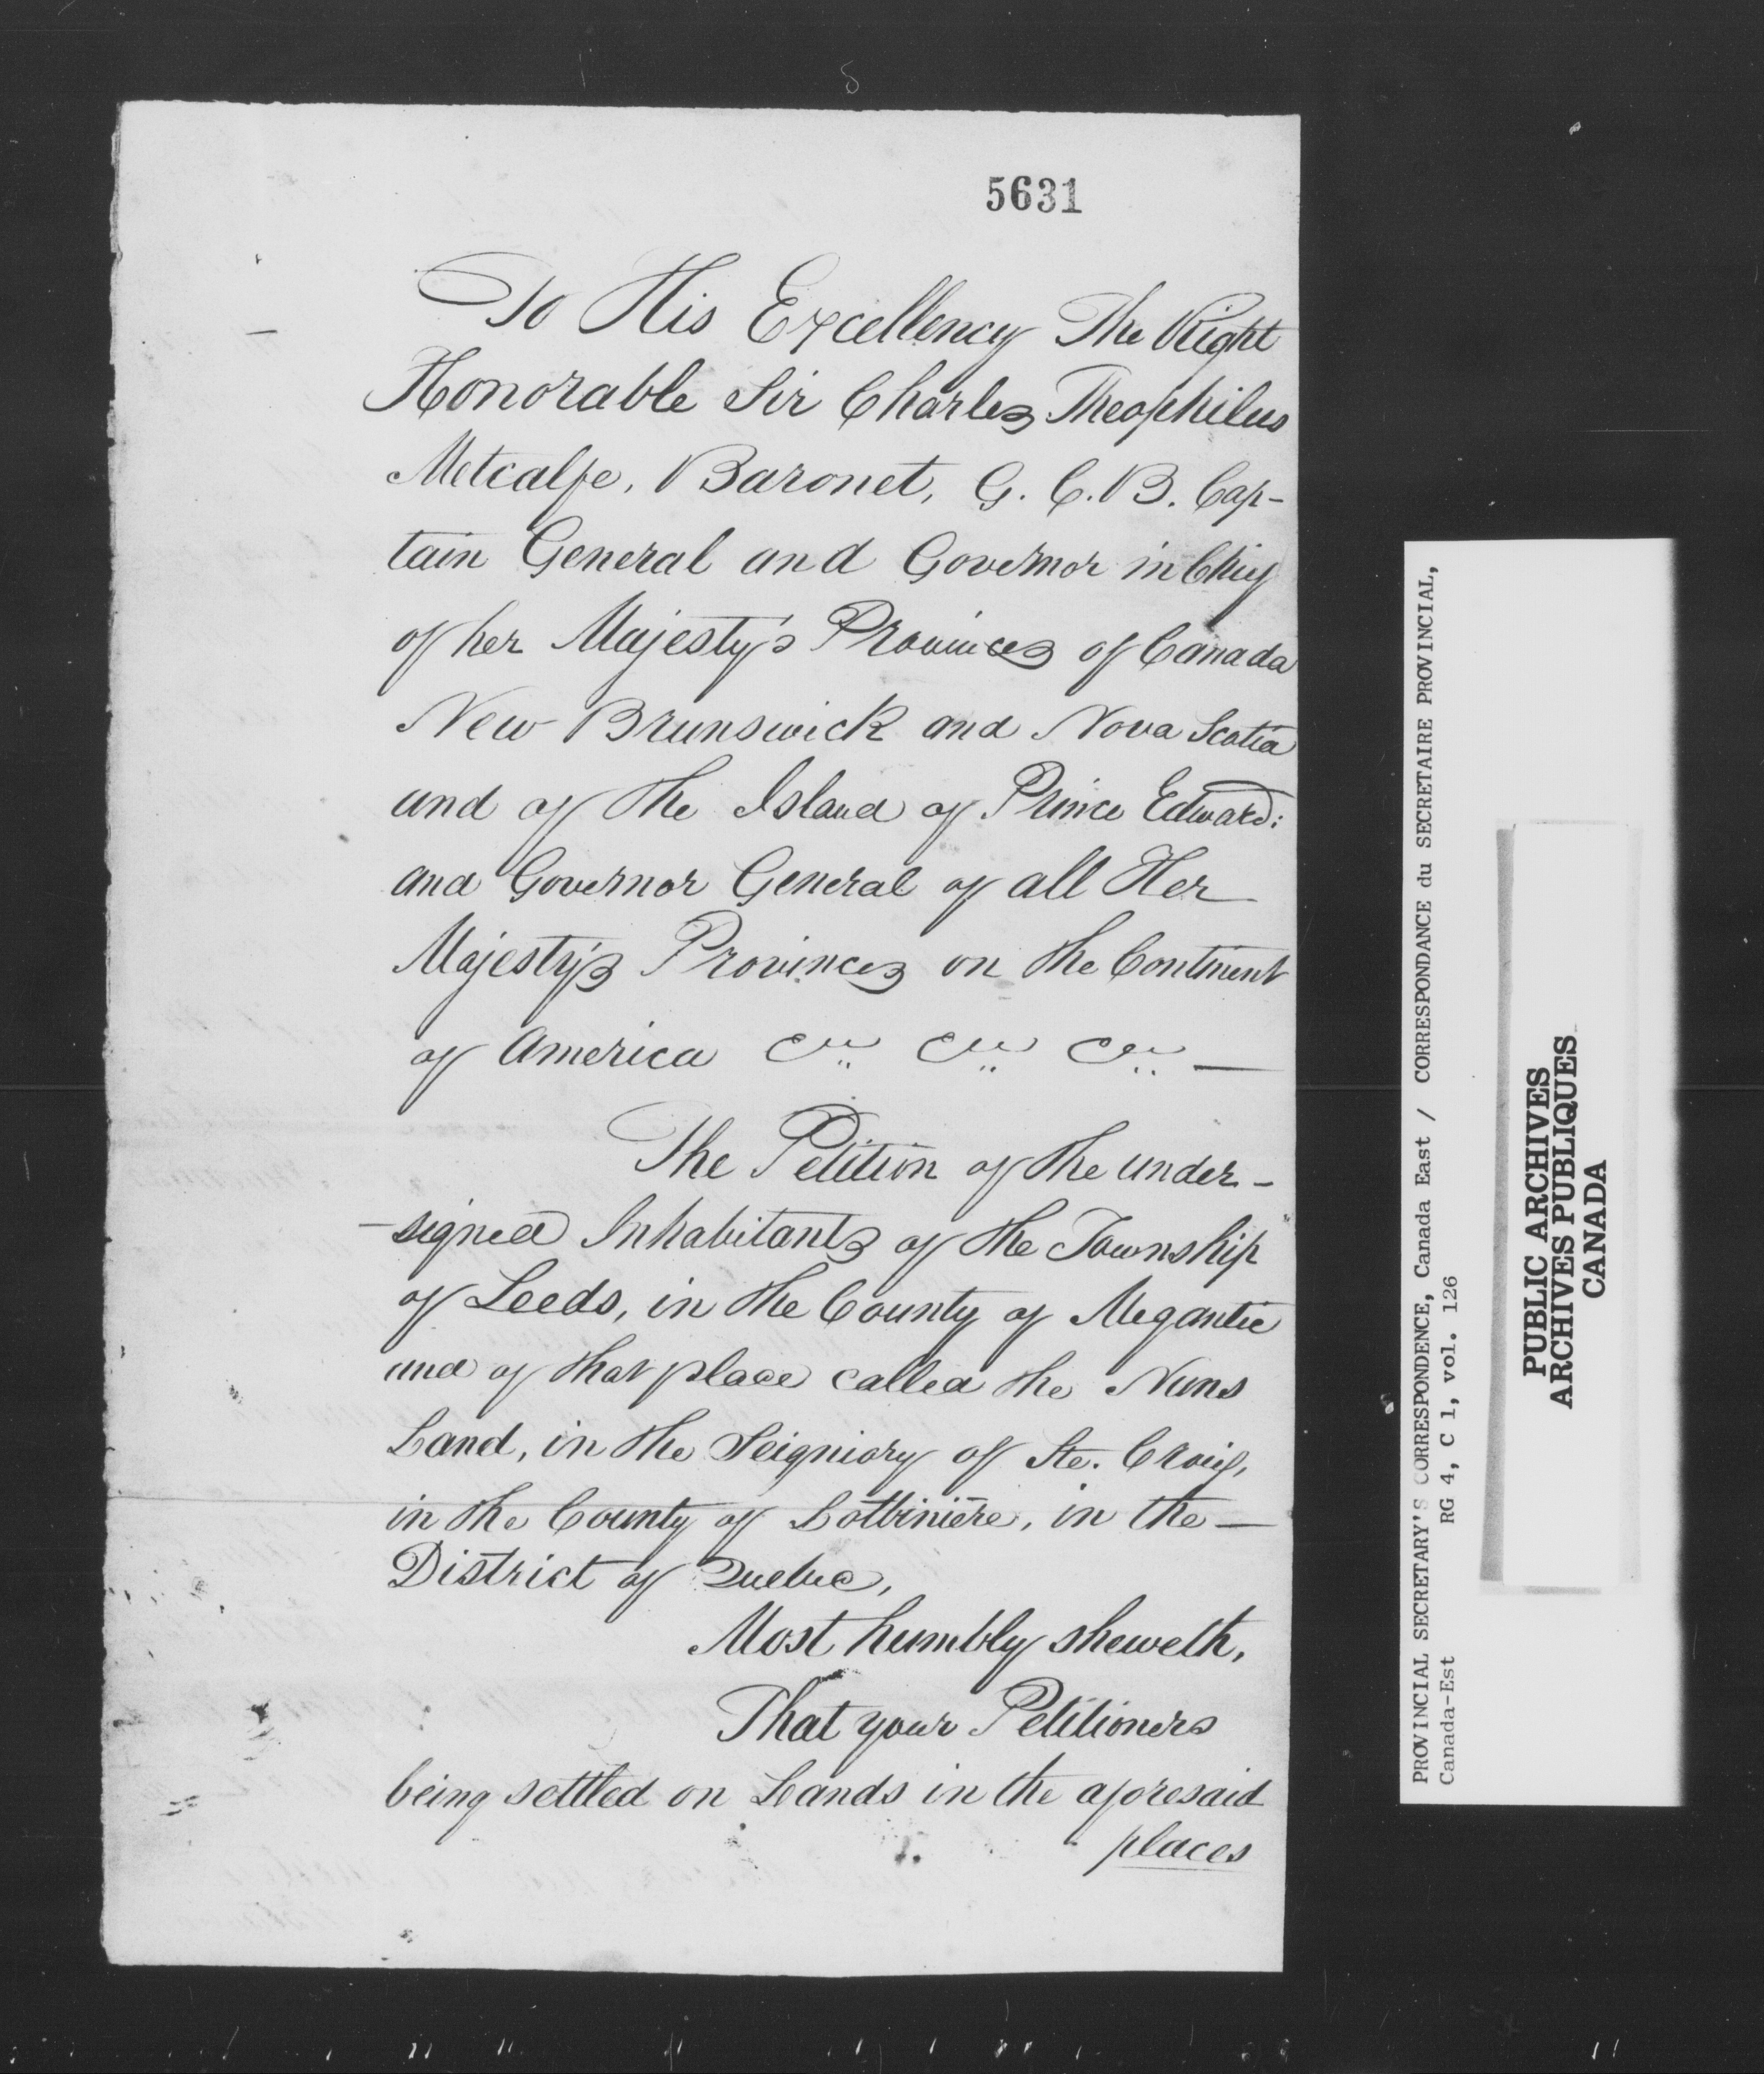 5631
To His Excellency The Right
Honorable Sir Charles Theophilus
Metcalfe, Baronet, G. C. B. Cap-
tain General and Governor in Chief
of her Majesty's Provinces of Canada
New Brunswick and Nova Scotia
and of the Island of Prince Edward:
and Governor General of all Her
Majesty's Provinces on the Continent
of America &c &c &c —
The Petition of the under-
-signed Inhabitants of the Township
of Leeds, in the County of Megantic
and of that place called the Nuns
Land, in the Seigniory of Ste. Croix,
in the County of Lotbinière, in the —
District of Quebec,
Most humbly sheweth,
That your Petitioners
being settled on Lands in the aforesaid
places
PROVINCIAL SECRETARY'S CORRESPONDENCE, Canada East / CORRESPONDANCE du SECRETAIRE PROVINCIAL,
Canada-Est RG 4, C 1, vol. 126
PUBLIC ARCHIVES
ARCHIVES PUBLIQUES
CANADA